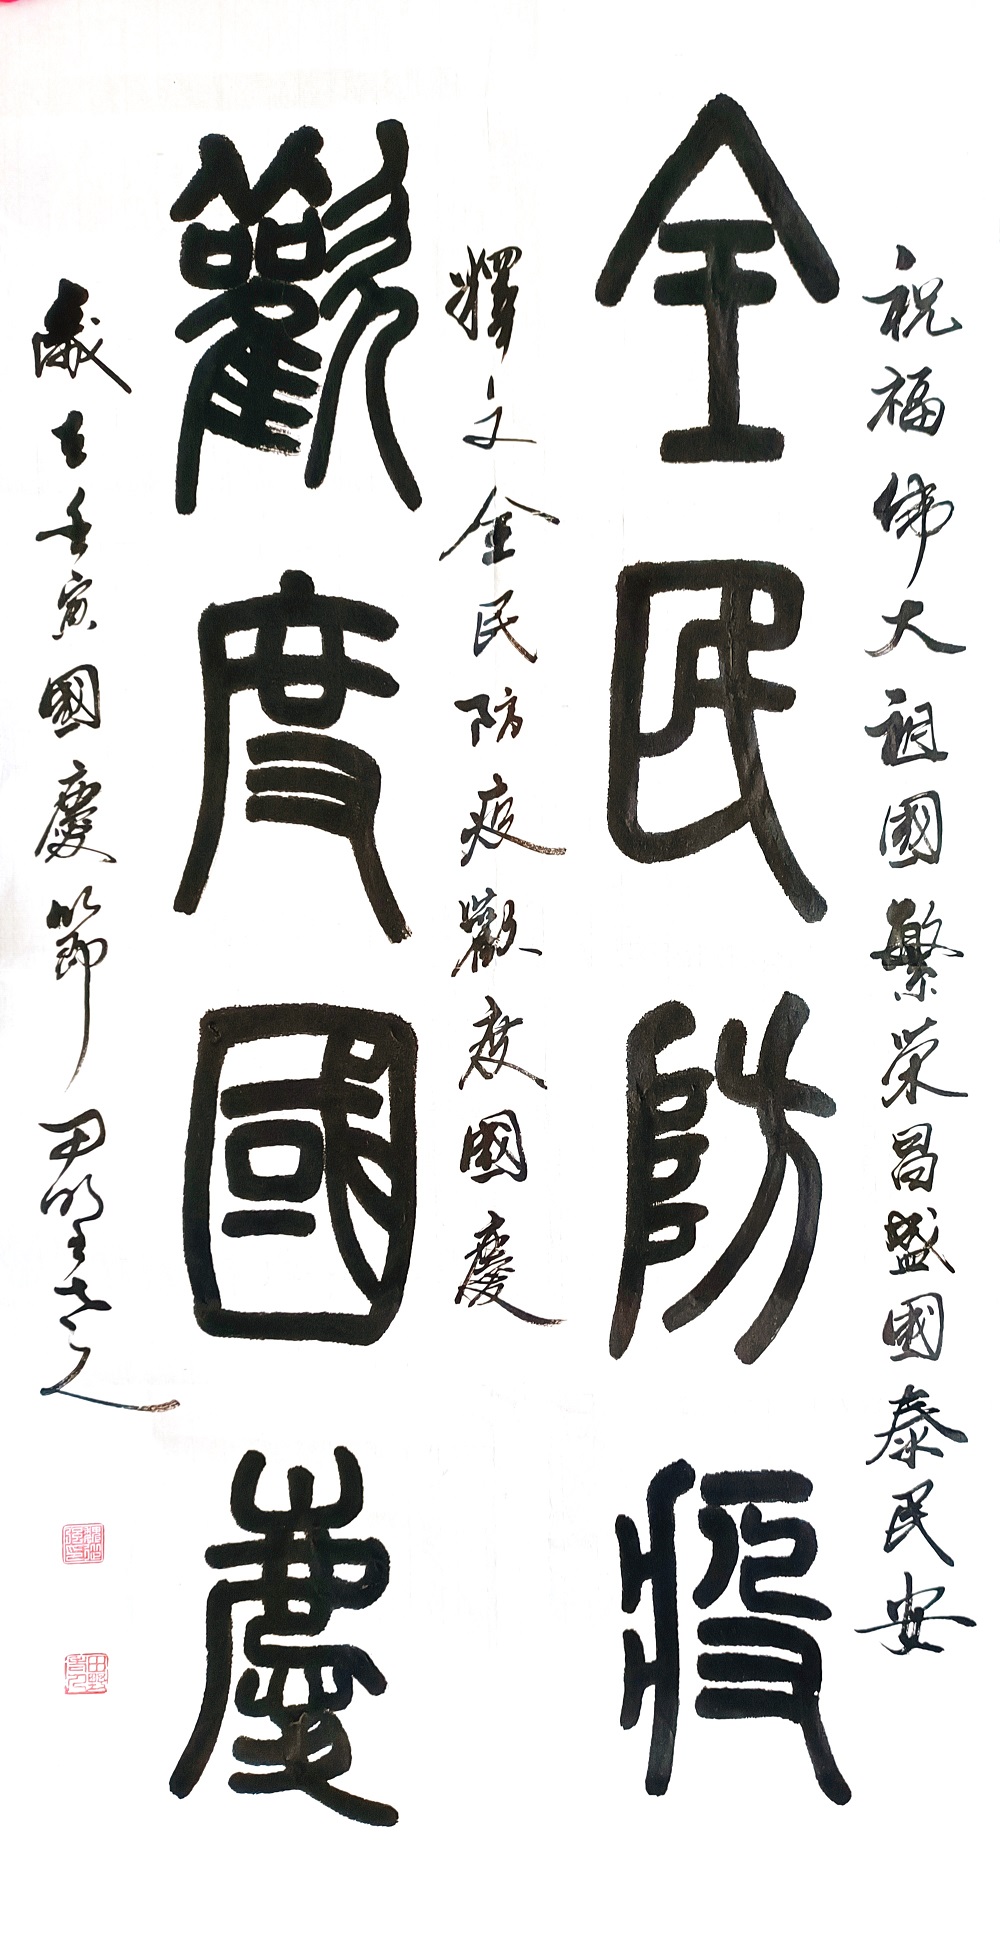 祝福偉大祖國繁榮昌盛國泰民安
全民防疫
釋文全民防疫歡度國慶
歡度國慶
歲在壬寅國慶節